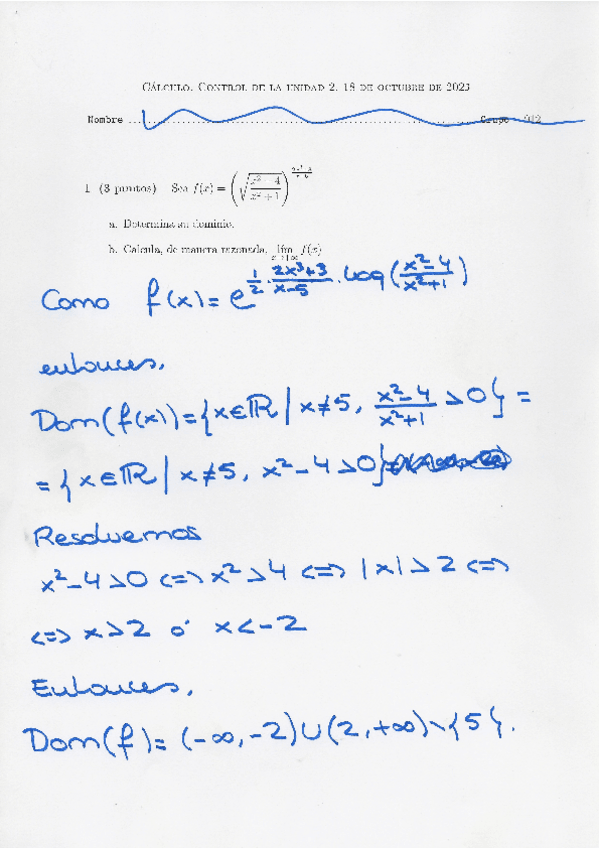 CÁLCULO. CONTROL DE LA UNIDAD 2. 18 DE OCTUBRE DE 2023
Nombre ........ Grupo
1 (3 puntos) Sea f(x) = (√((x²−4)/(x²+1)))
a. Determina su dominio.
b. Calcula, de manera razonada, lím f(x)
Como f(x) = e^(1/2 · (2x³+3)/(x−5) · log((x²−4)/(x²+1)))
entonces,
Dom(f(x)) = {x∈ℝ | x≠5, (x²−4)/(x²+1) > 0} =
= {x∈ℝ | x≠5, x²−4 > 0}
Resolvemos
x²−4 > 0 <=> x² > 4 <=> |x| > 2 <=>
<=> x > 2 ó x < −2
Entonces,
Dom(f) = (−∞, −2) ∪ (2, +∞) \ {5}.